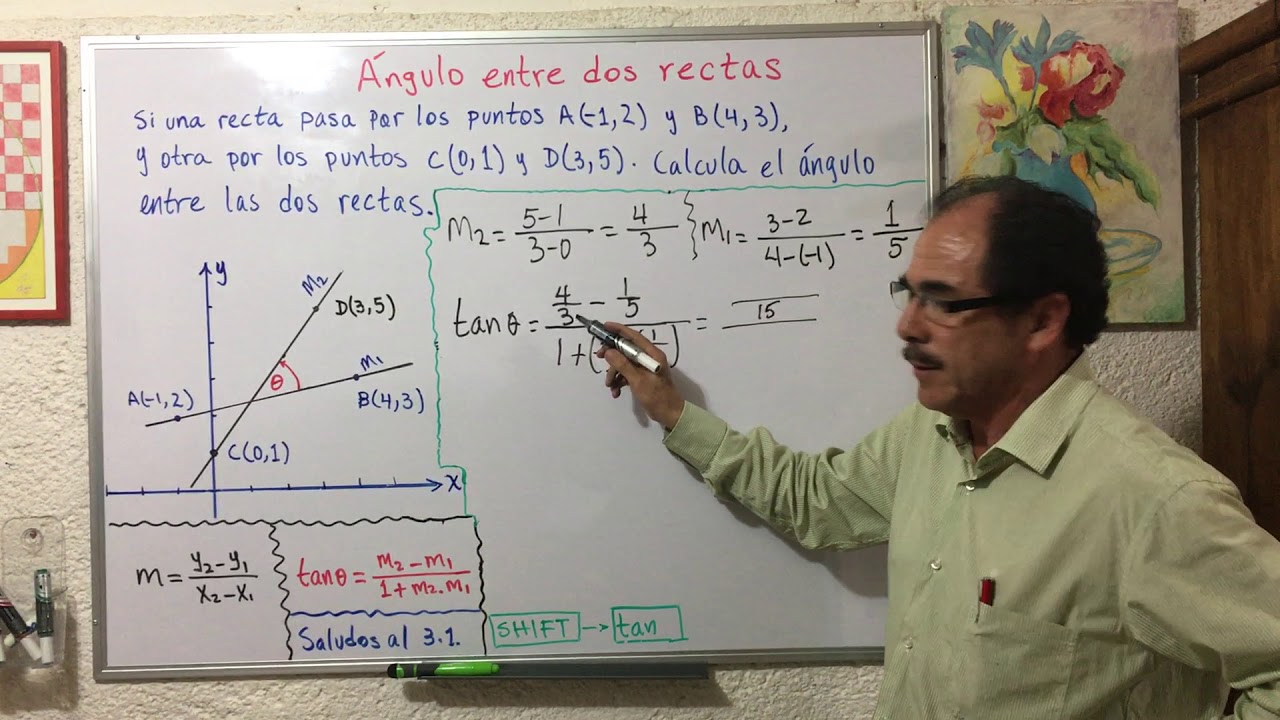 Ángulo entre dos rectas
Si una recta pasa por los puntos A(-1,2) y B(4,3),
y otra por los puntos C(0,1) y D(3,5). Calcula el ángulo
entre las dos rectas.
M₂ = (5-1)/(3-0) = 4/3 } M₁ = (3-2)/(4-(-1)) = 1/5
tanθ = (4/3 - 1/5)/(1+( 1 )) = /15
y
M₂
D(3,5)
M₁
θ
A(-1,2)
B(4,3)
C(0,1)
x
m = (y₂-y₁)/(x₂-x₁)
tanθ = (m₂-m₁)/(1+m₂.m₁)
Saludos al 3.1.
SHIFT → tan